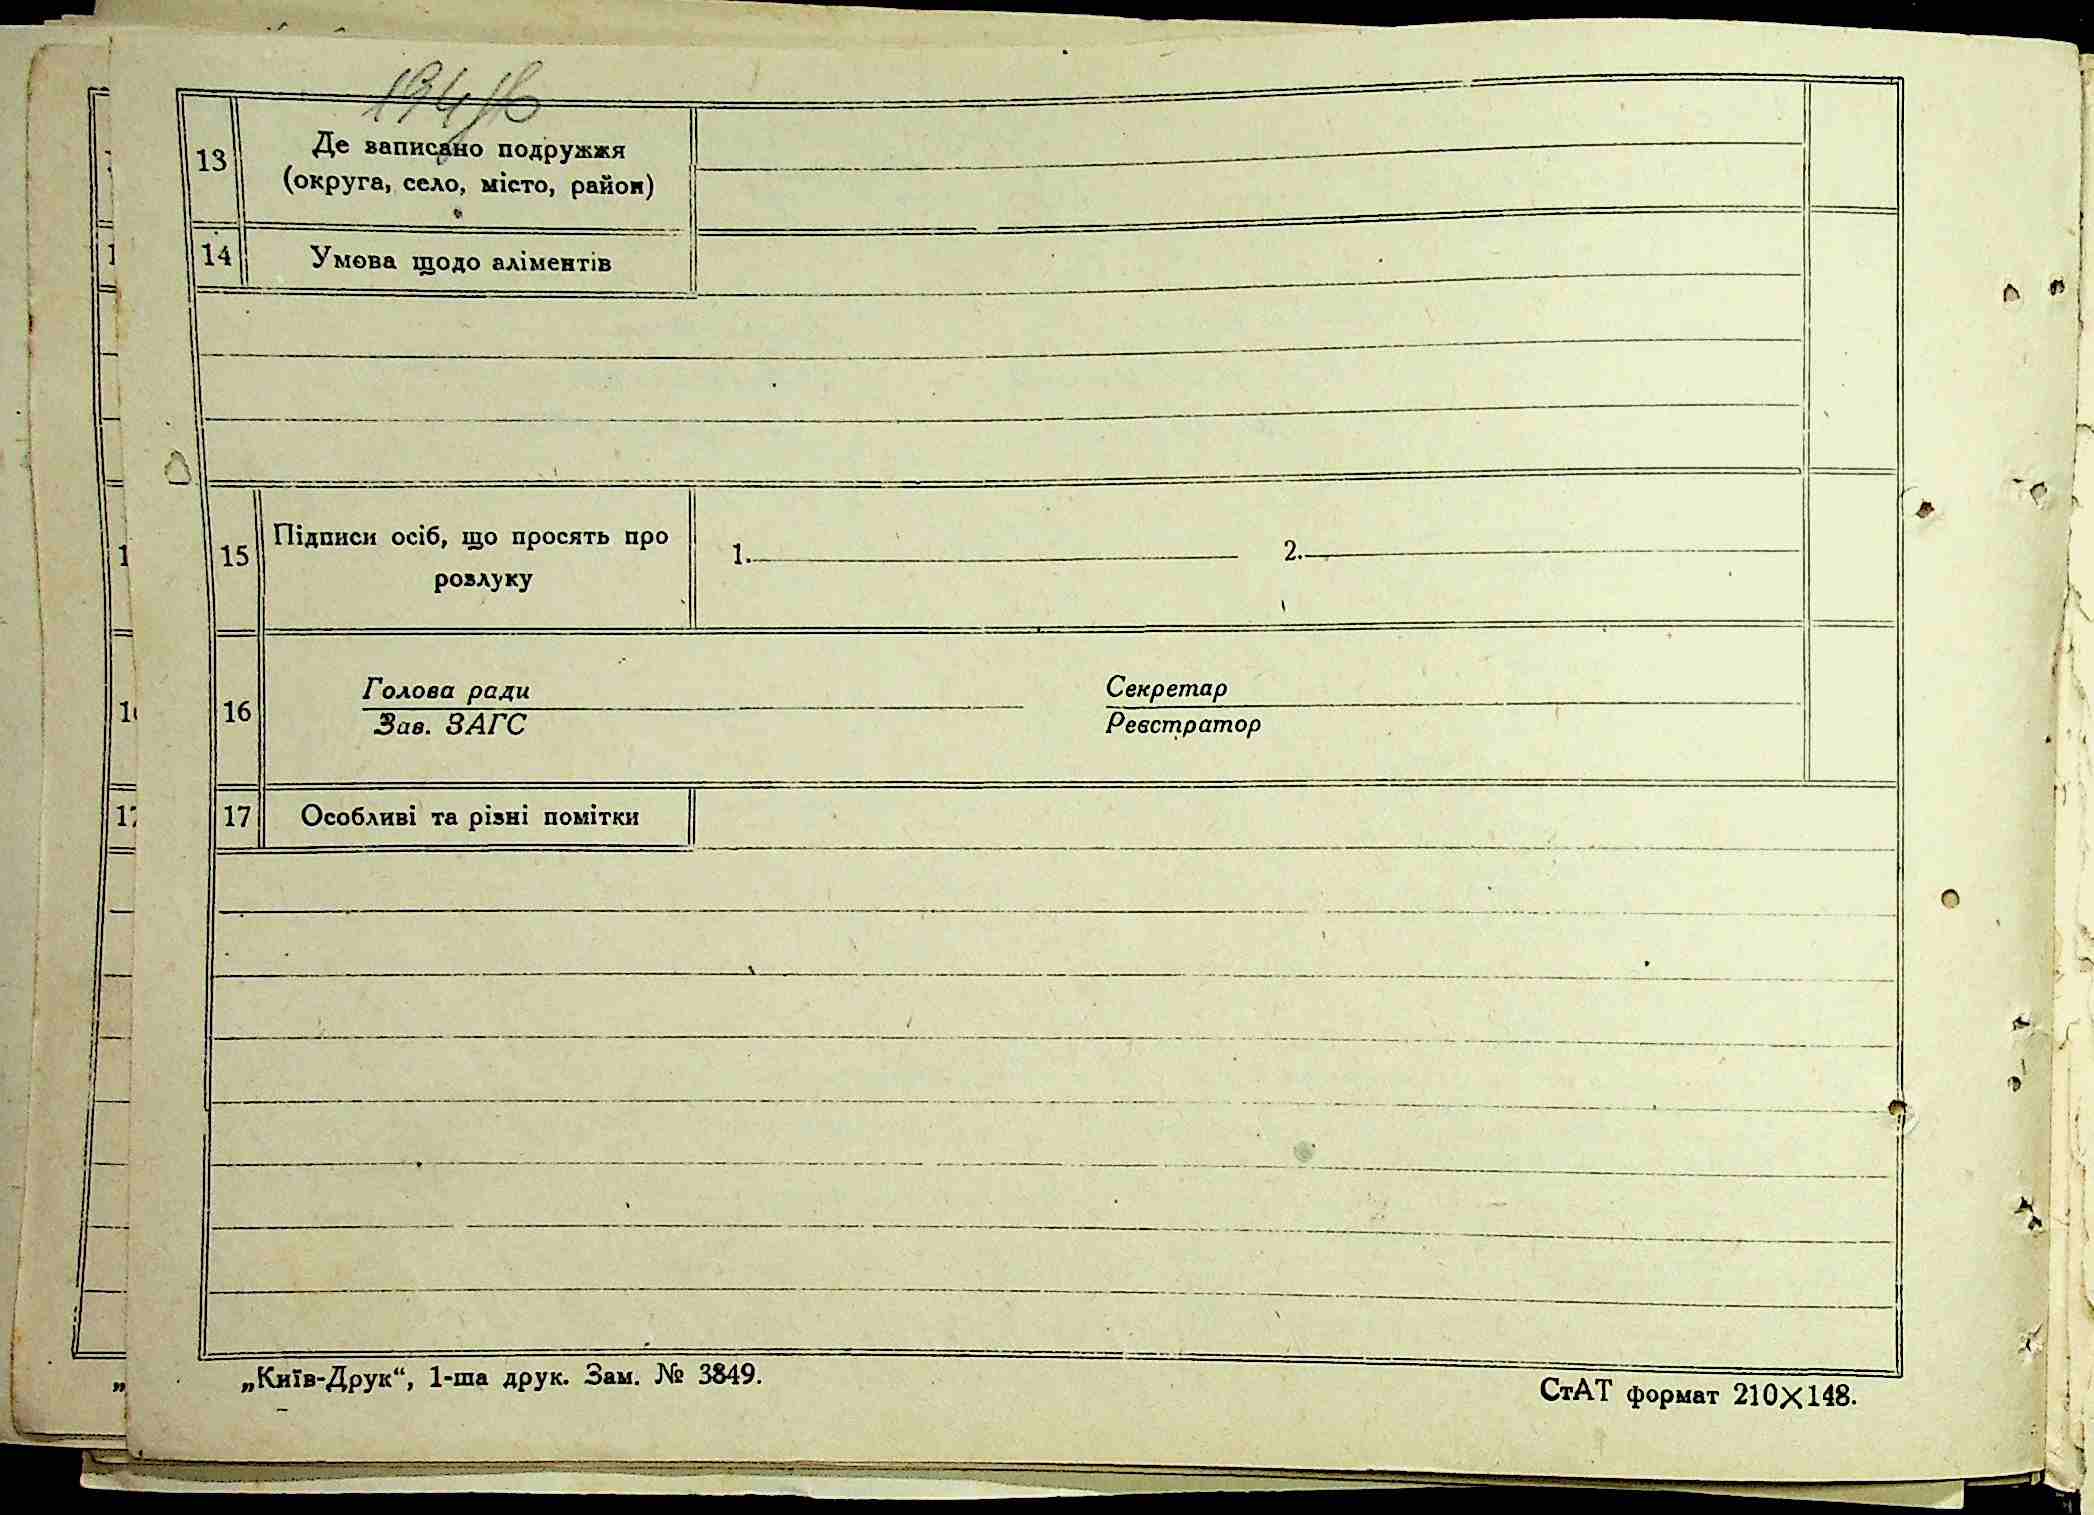 13 Де записано подружжя
(округа, село, місто, район)
14 Умова щодо аліментів
15 Підписи осіб, що просять про
розлуку
1. 2.
16 Голова ради Секретар
Зав. ЗАГС Реєстратор
17 Особливі та різні помітки
„Київ-Друк“, 1-ша друк. Зам. № 3849.
СтАТ формат 210×148.